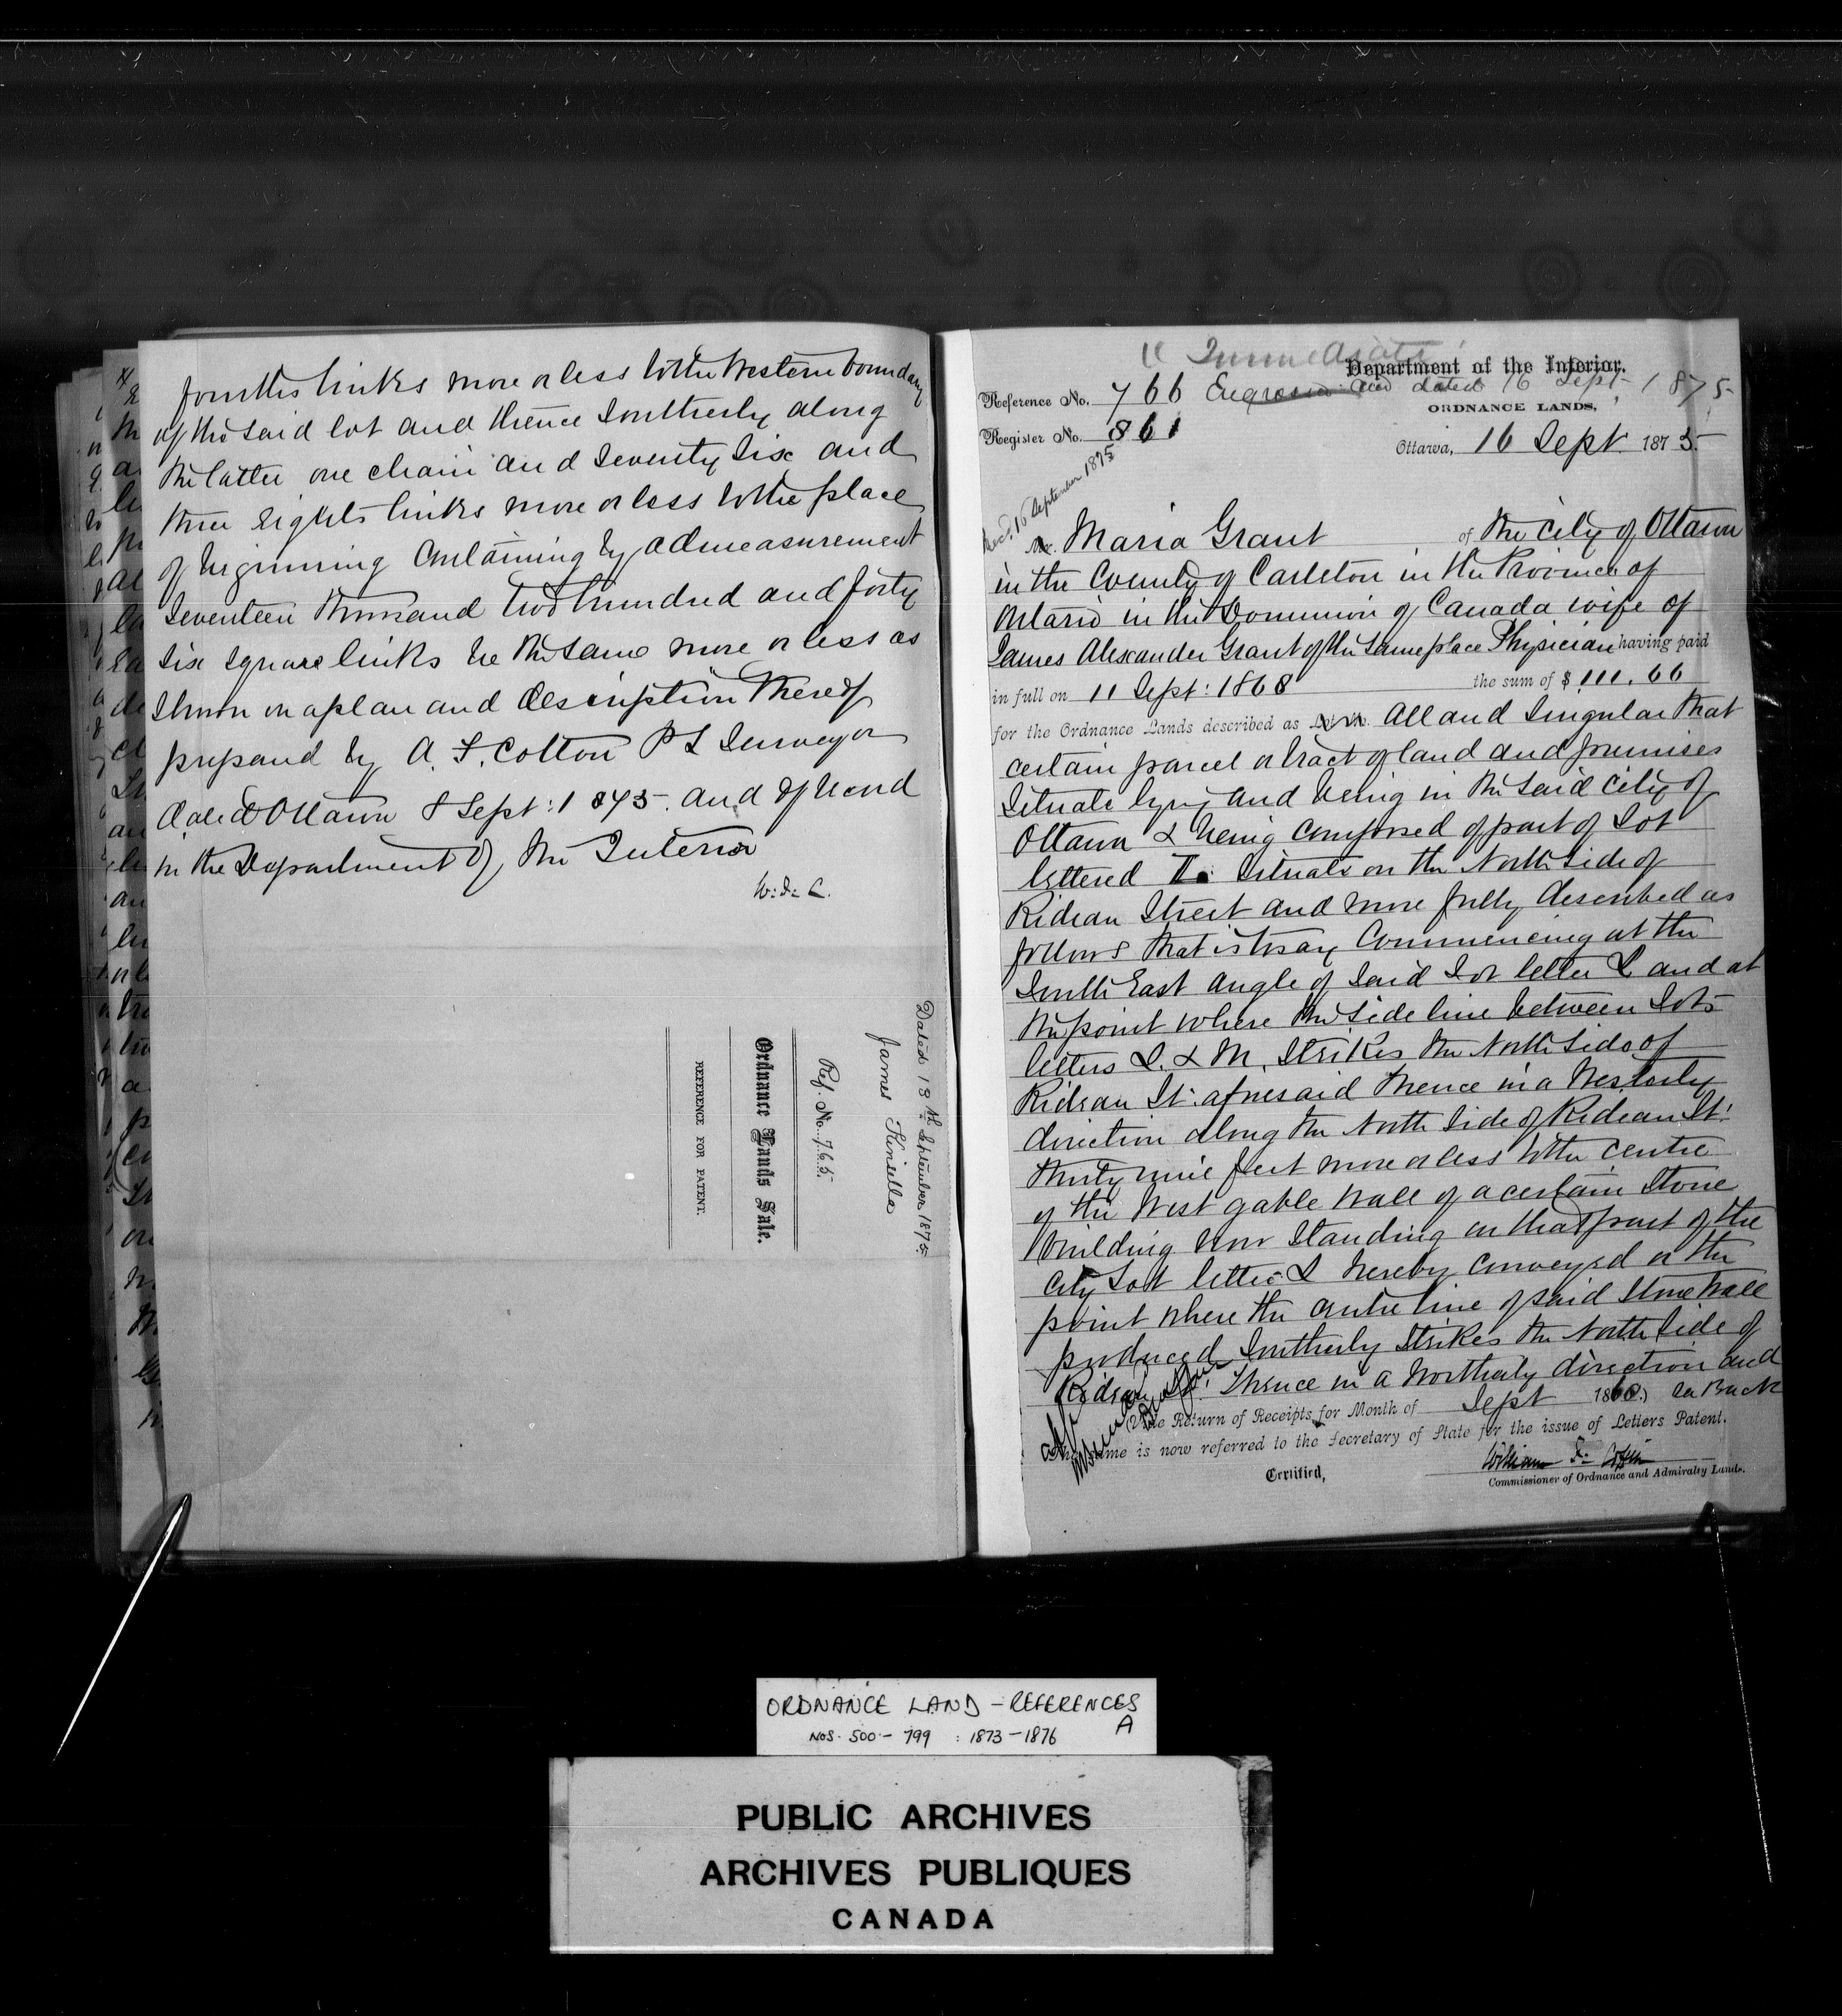 fourths links more or less to the Western boundary
of the said lot and thence Southerly along
the latter one chain and Seventy Six and
three Eights links more or less to the place
of beginning Containing by admeasurement
Seventeen thousand two hundred and forty
Six Square links be the same more or less as
Shewn on a plan and description thereof
prepared by A. F. Cotton P L Surveyor
dated Ottawa 8 Sept: 1875. and of record
in the Department of the Interior
W: F: C.
Dated 13th September 1875
James Kinsella
Ref. No. 765.
Ordnance Lands Sale.
REFERENCE FOR PATENT.
Immediate
Department of the Interior.
Reference No. 766 Engrossed and dated 16 Sept 1875
ORDNANCE LANDS,
Register No. 861
Ottawa, 16 Sept. 1875
Recd. 16 September 1875
Mr. Maria Grant of the City of Ottawa
in the County of Carleton in the Province of
Ontario in the Dominion of Canada wife of
James Alexander Grant of the Same place Physician having paid
in full on 11 Sept: 1868 the sum of $111.66
for the Ordnance Lands described as Lot No. All and Singular that
certain parcel or tract of land and premises
Situate lying and being in the said City of
Ottawa & being composed of part of Lot
lettered L. Situate on the North side of
Rideau Street and more fully described as
follows that is to say Commencing at the
South East angle of Said Lot letter L and at
the point where the Side line between Lots
letters L. & M. Strikes the North Side of
Rideau St. aforesaid thence in a Westerly
direction along the North Side of Rideau St.
thirty nine feet more or less to the centre
of the West gable wall of a certain Stone
building now Standing on that part of the
City Lot letter L hereby conveyed or the
point where the centre line of said Stone wall
produced Southerly Strikes the North Side of
Rideau St. thence in a Northerly direction and
(Vide Return of Receipts for Month of Sept 1868.) on Back
The same is now referred to the Secretary of State for the issue of Letters Patent.
Certified,
William F. Coffin
Commissioner of Ordnance and Admiralty Lands.
ORDNANCE LAND - REFERENCES
NOS. 500 - 799 : 1873 - 1876 A
PUBLIC ARCHIVES
ARCHIVES PUBLIQUES
CANADA